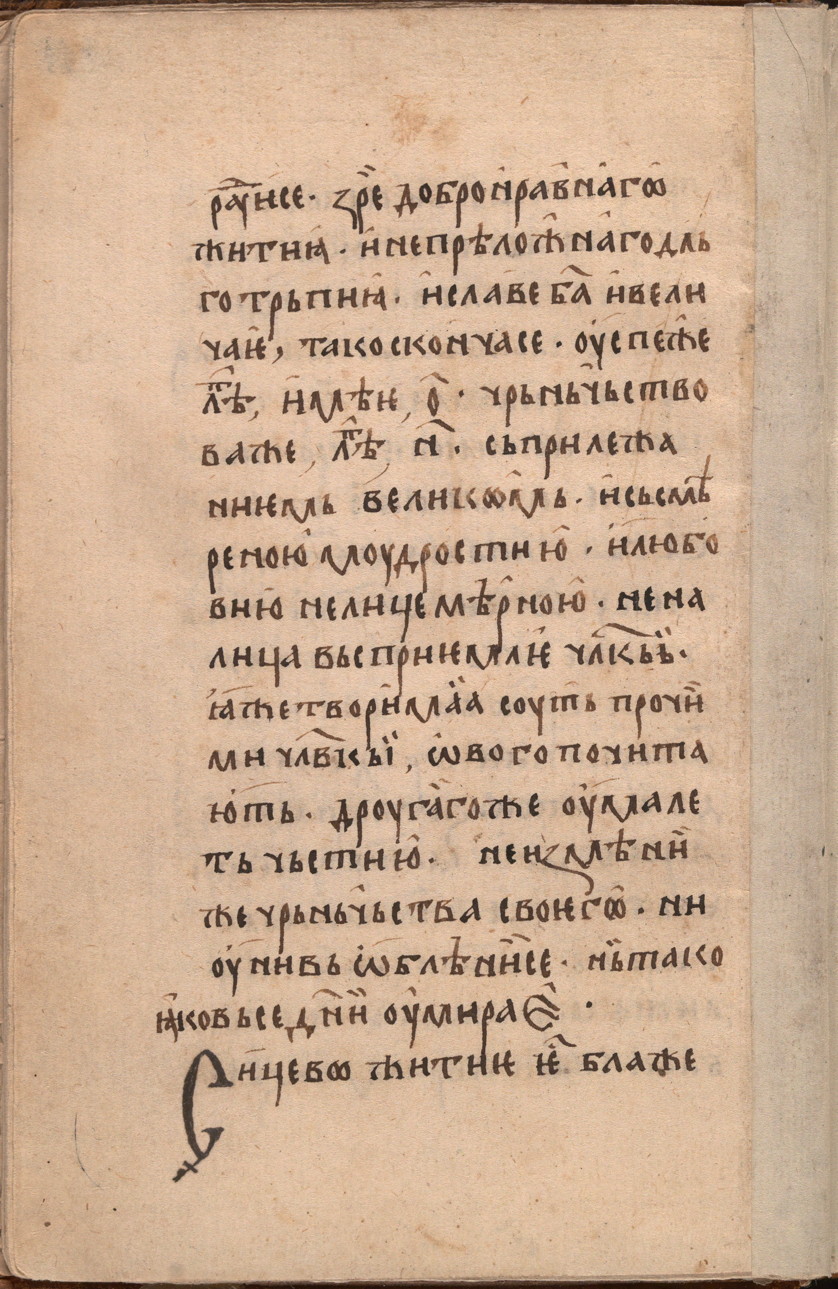 раⷣуисе· зре̏ добронра́внагѡ
житиꙗ· и҆непрѣло́жнагодль
готрьпниꙗ· и҆славе б҃а и҆вели
чаѥ, такоскончасе· оу҆спеже
лⷮѣ, и҆мѣѥ, о҃· чрьньчьство
важе, лⷮѣ, н҃· сьприлежа
ниѥмь великѡмь· и҆сьсмѣ
реною моудростию· и҆любо
вию нелицемѣрною· нена
лица вьсприѥмлѥ чл҃кꙑ·
ꙗ҆жетворимаа соуть прочїи
ми чл҃вкы, ѡ҆вого почита
ють· дроугагоже оу҆мале
ть чьстию· неизмѣни
же чрьньчьства своѥгѡ· ни
оу҆нивь ѡ҆блѣнисе· нь тако
ꙗ҆ковьседн҃и оу҆мираѥ·
Сицево житиѥ ѥⷭ блаже